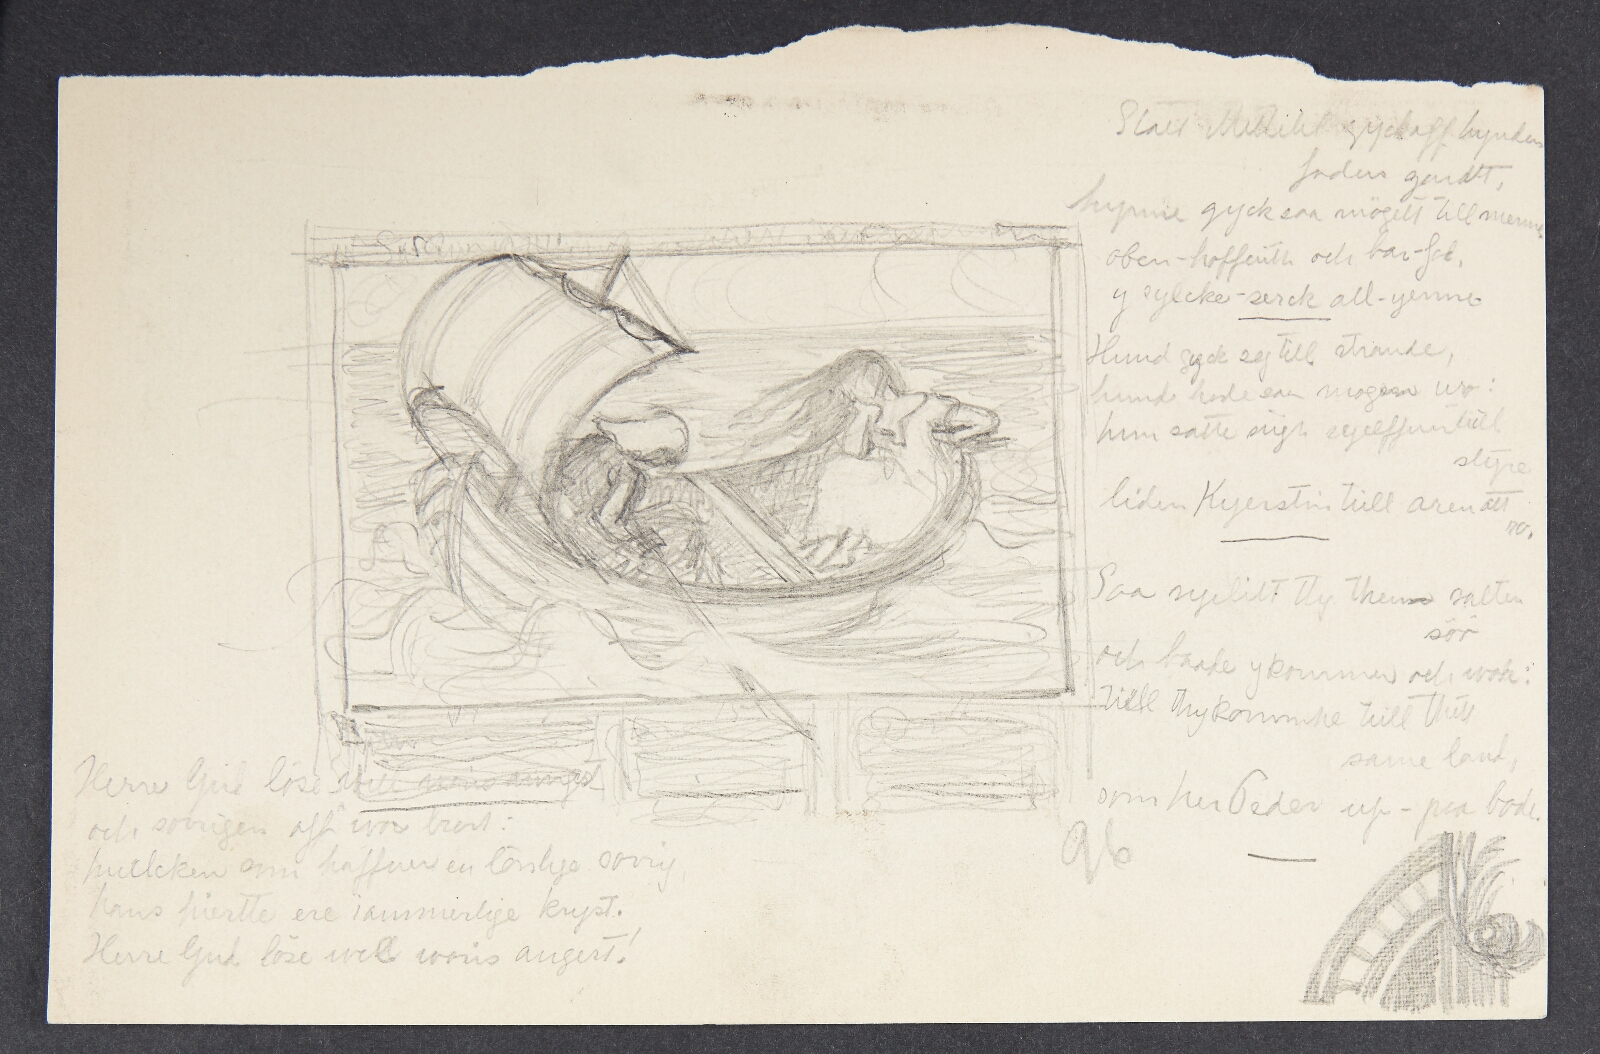 Stalt Mettelil gyck aff hynders
faders gardt,
hynne gyck saa mögitt till menne
oben-hoffuitt och bar-fod,
y sylcke-serck all-yenne
Hund gyck seg till strande,
hund hode saa mogen wo:
hun satte sigh sylff till
styre
liden Kyerstin till aren att
ro.
Saa sylitt thy them salten
söö
och baade y kommer och wok:
till thy komme till thit
same land,
som her Peder up-paa bode.
96
Herre Gud löse well woris angest
och sorrigen aff wor brest:
huilcken som haffuer en lönlige sorrig,
hans hiertte ere iammerlige kryst.
Herre Gud löse well woris angest!